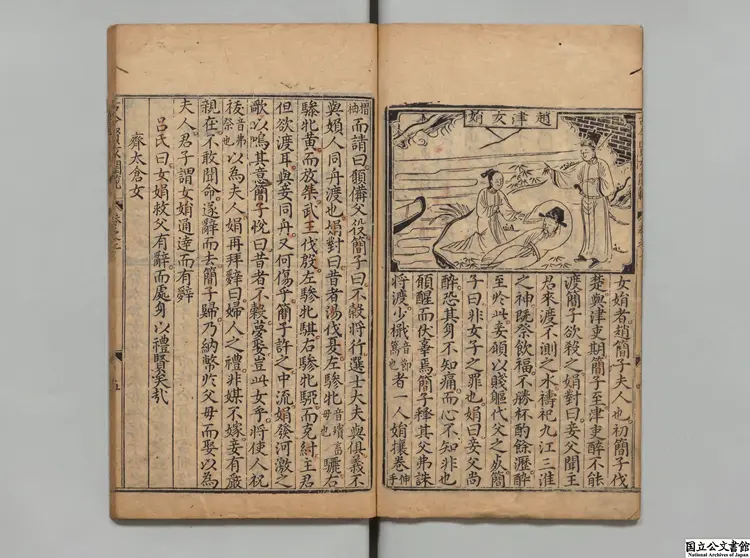 趙津女娟
女娟者趙簡子夫人也初簡子伐
楚與津吏期簡子至津吏醉不能
渡簡子欲殺之娟對曰妾父聞王
君來渡不測之水禱祀九江三淮
之神既祭飲福不勝杯酌餘瀝醉
至於此妾願以賤軀代父之死簡
子曰非女子之罪也娟曰妾父尚
醉恐其身不知痛而心不知非也
願醒而伏辜焉簡子釋其父弗誅
將渡少檝音節篙也者一人娟攘卷伸手
揎袖而請曰願備父役簡子曰不穀將行選士大夫與俱義不
與婦人同舟渡也娟對曰昔者湯伐夏左驂牝音瓊畜母也驪右
驂牝黃而放桀武王伐殷左驂牝騏右驂牝騜而克紂主君
但欲渡耳與妾同舟又何傷乎簡子許之中流娟發河激之
歌以鳴其意簡子悅曰昔者不穀夢娶豈此女乎將使人祝
祓音弗祭也以為夫人娟再拜辭曰婦人之禮非媒不嫁妾有嚴
親在不敢聞命遂辭而去簡子歸乃納幣於父母而娶以為
夫人君子謂女娟通達而有辭
呂氏曰女娟救父有辭而處身以禮賢矣哉
齊太倉女
五
国立公文書館
National Archives of Japan